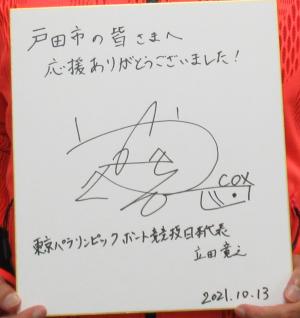 戸田市の皆さまへ
応援ありがとうございました！
COX
東京パラリンピック ボート競技日本代表
立田 寛之
2021.10.13